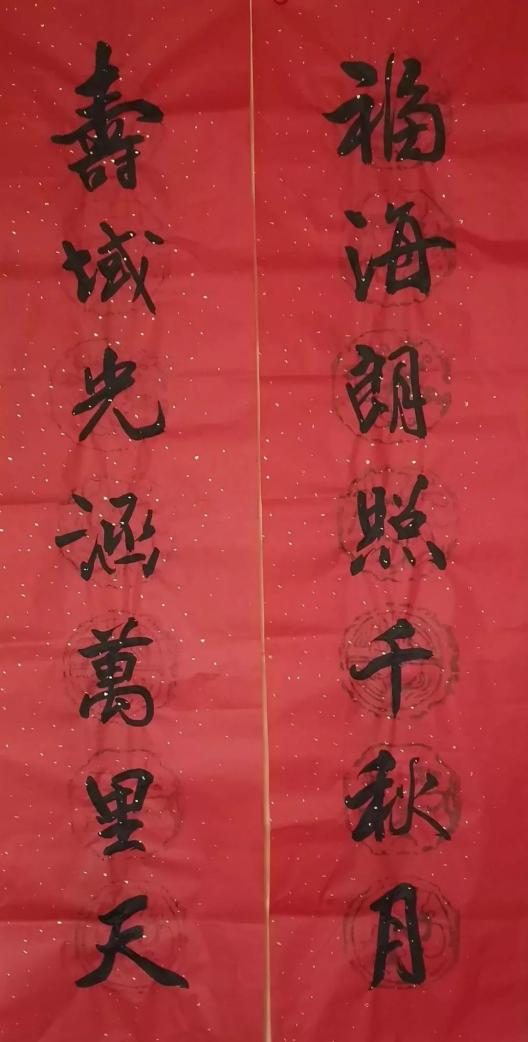 福海朗照千秋月
壽域光涵萬里天